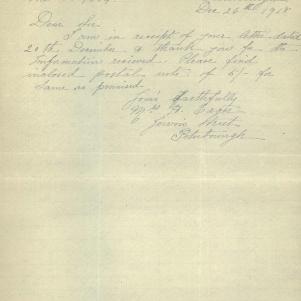 Dec 26th 1918
Dear Sir
I am in receipt of your letter dated
20th December & thank you for the
Information recieved. Please find
inclosed postal note of 5/- for
same as promised.
Yours faithfully
Mrs H.
Street
Peterborough